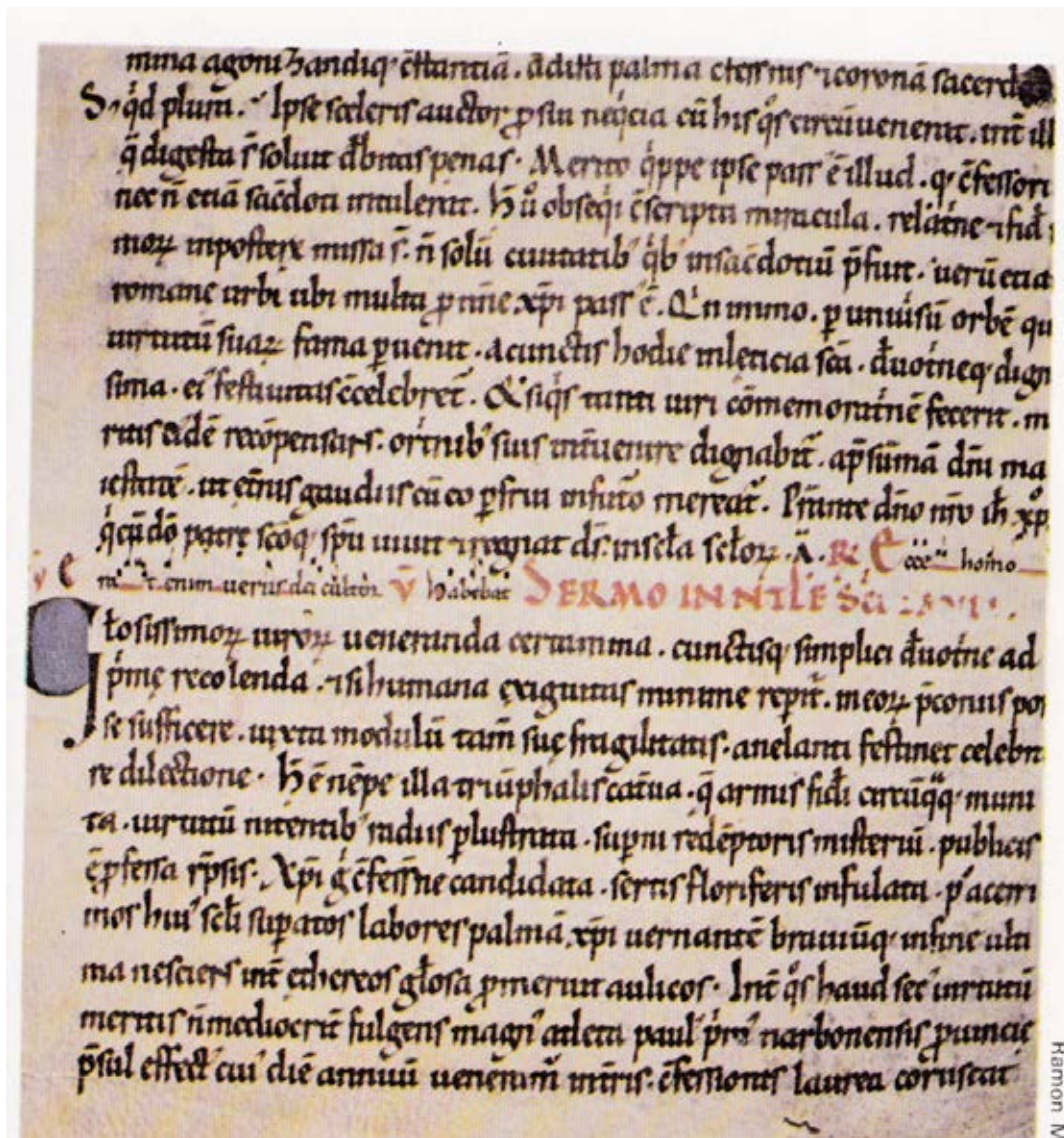 mina agonizandiq; c̄stantiā. ādisti palma c̄fessionis ⁊ coronā sacerd
S; q̇d plura. Ipse sceleris auctor ꝓ sua neq̇cia cū his q̇s circūuenerat. int̄ ill
q̄ digesta s̄ soluit d̄bitas penas. Merito q̇ppe ipse pass ē illud. q; c̄fessori
nec n̄ etiā sac̄doti intulerat. h̄ u̇o obseq̇i c̄scripta miracula. relat̄ne ⁊ fid̄
moꝝ inposteꝝ missa s̄. n̄ solū ciuitatib; q̇b; insac̄dotiū p̄fuit. uerū etiā
romane urbi ubi multa ꝓ nn̄e xp̄i pass; ē. Q̇n immo. ꝑ uniūsū orbē qu
uirtutū suaꝝ fama ꝑuenit. a cunctis hodie inleticia sc̄a. d̄uot̄neq; dign
sima. ei festiuitas c̄celebret̄. Et siq̇s tanti uiri cōmemorat̄nē fecerit. m
ritis eidē recōpensans. or̄nib; suis int̄uenire dignabit̄. ap̄ sūmā dn̄i ma
iestatē. ut et̄nis gaudiis cū eo ꝑfrui infut̄o mereat̄. P̄stante dn̄o nr̄o ih̄u xp̄
q̇ cū dō patre sc̄oq; sp̄u uiuit ⁊ regnat ds̄ insc̄la sc̄loꝝ. A. R̄ Ecce homo
enim uerus dei cultor V̄ habebat SERMO IN NT̄LE S̄ci
Gl̄osissimoꝝ uiroꝝ ueneranda certamina. cunctisq; simplici d̄uot̄ne ad
ṗme recolenda. ⁊ si humana exiguitas minime rep̄it. meoꝝ p̄coniis pos
se sufficere. iuxta modulū tam̄ suę fragilitatis. anelanti festinet celebra
re dilectione. h̄ ē nēpe illa triūphalis cat̄ua. q̄ armis fid̄i circūq̇q; muni
ta. uirtutū nitentib; radiis ꝑlustrata. suꝑni redēptoris misteriū. publicis
ē ꝓfessa r̄psis. Xp̄i g̊ c̄fess̄ne candidata. sertis floriferis infulata. p; acerri
mos hui; scl̄i suꝑatos labores palmā xp̄i uernantē brauiūq; infine ulti
ma nesciens int̄ ethereos gl̄osa ꝓmeruit aulicos. Int̄ q̇s haud sec; uirtutū
meritis n̄ mediocrit̄ fulgens magn; atleta paul; ṗm; narbonensis ꝓuincie
p̄sul effect; cui; diē annuū uenerām̄ int̄is. c̄fessionis laurea coruscat
Ramon M